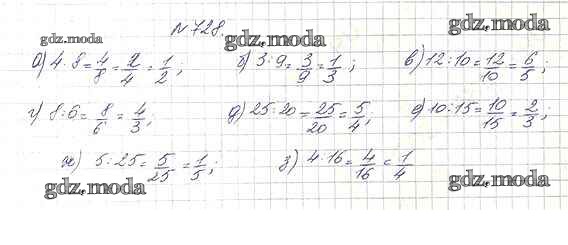 N 728.
gdz.moda gdz.moda gdz.moda
а) 4:8 = 4/8 = 2/4 = 1/2; б) 3:9 = 3/9 = 1/3; в) 12:10 = 12/10 = 6/5;
г) 8:6 = 8/6 = 4/3; д) 25:20 = 25/20 = 5/4; е) 10:15 = 10/15 = 2/3;
ж) 5:25 = 5/25 = 1/5; з) 4:16 = 4/16 = 1/4
gdz.moda gdz.moda gdz.moda